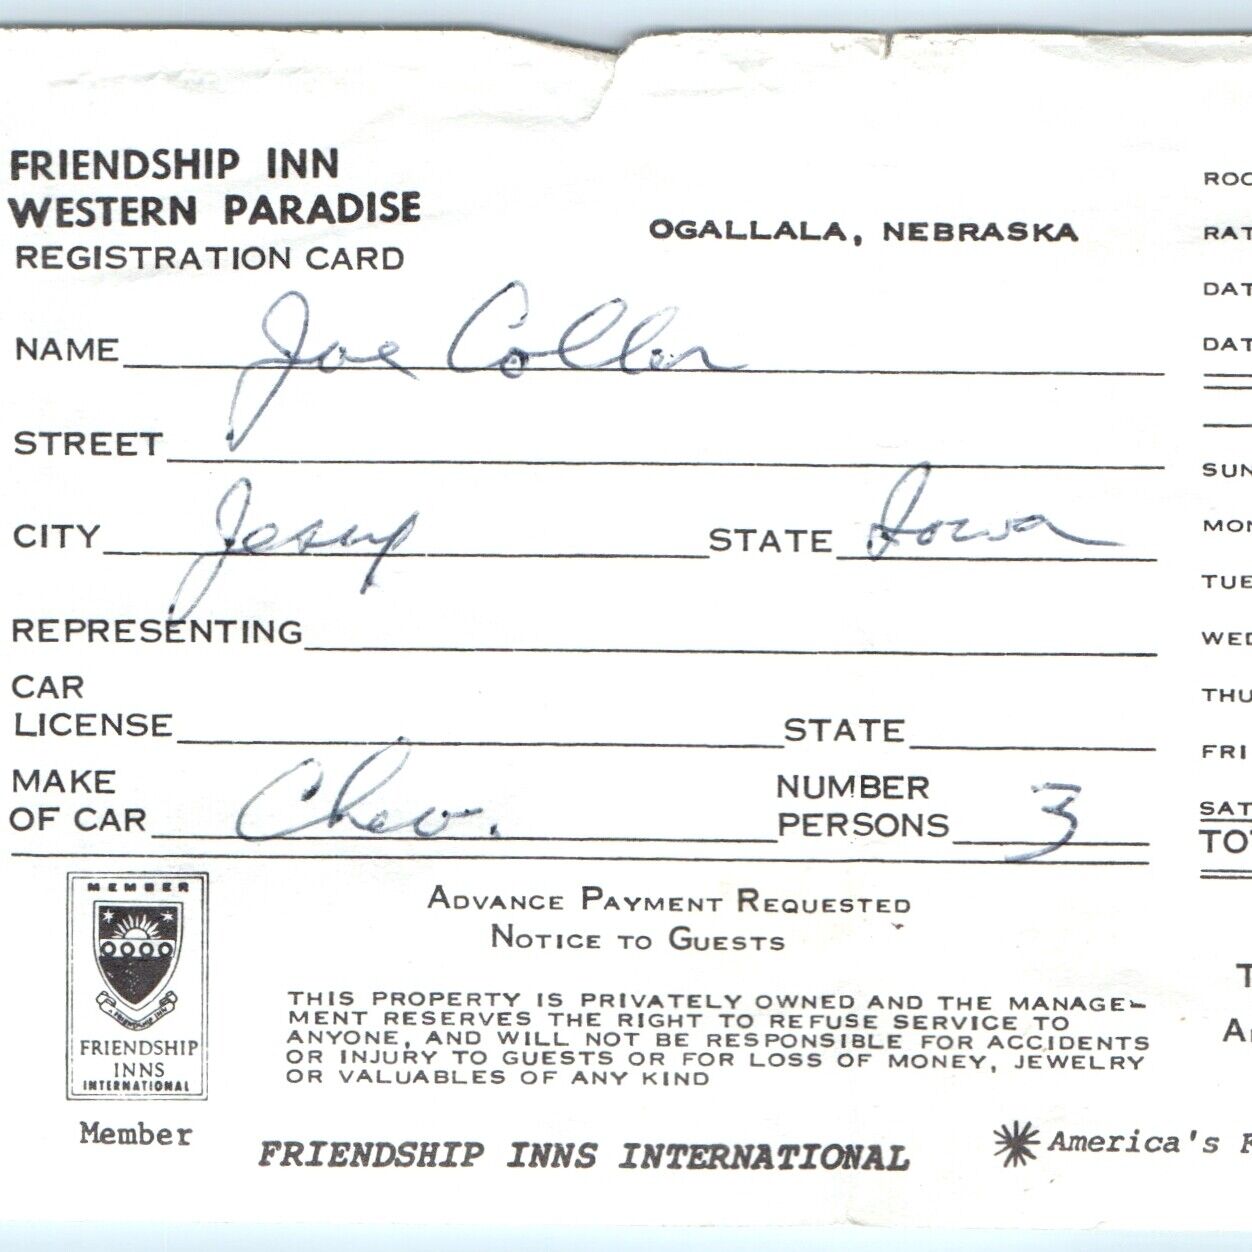 FRIENDSHIP INN
WESTERN PARADISE
REGISTRATION CARD
OGALLALA, NEBRASKA
NAME Joe Coller
STREET
CITY Jesup STATE Iowa
REPRESENTING
CAR
LICENSE STATE
MAKE
OF CAR Chev.
NUMBER
PERSONS 3
ROO
RAT
DAT
DAT
SUN
MON
TUE
WED
THU
FRI
SAT
TO
MEMBER
FRIENDSHIP INN
FRIENDSHIP
INNS
INTERNATIONAL
Member
ADVANCE PAYMENT REQUESTED
NOTICE TO GUESTS
THIS PROPERTY IS PRIVATELY OWNED AND THE MANAGE-
MENT RESERVES THE RIGHT TO REFUSE SERVICE TO
ANYONE, AND WILL NOT BE RESPONSIBLE FOR ACCIDENTS
OR INJURY TO GUESTS OR FOR LOSS OF MONEY, JEWELRY
OR VALUABLES OF ANY KIND
FRIENDSHIP INNS INTERNATIONAL
America's
T
A